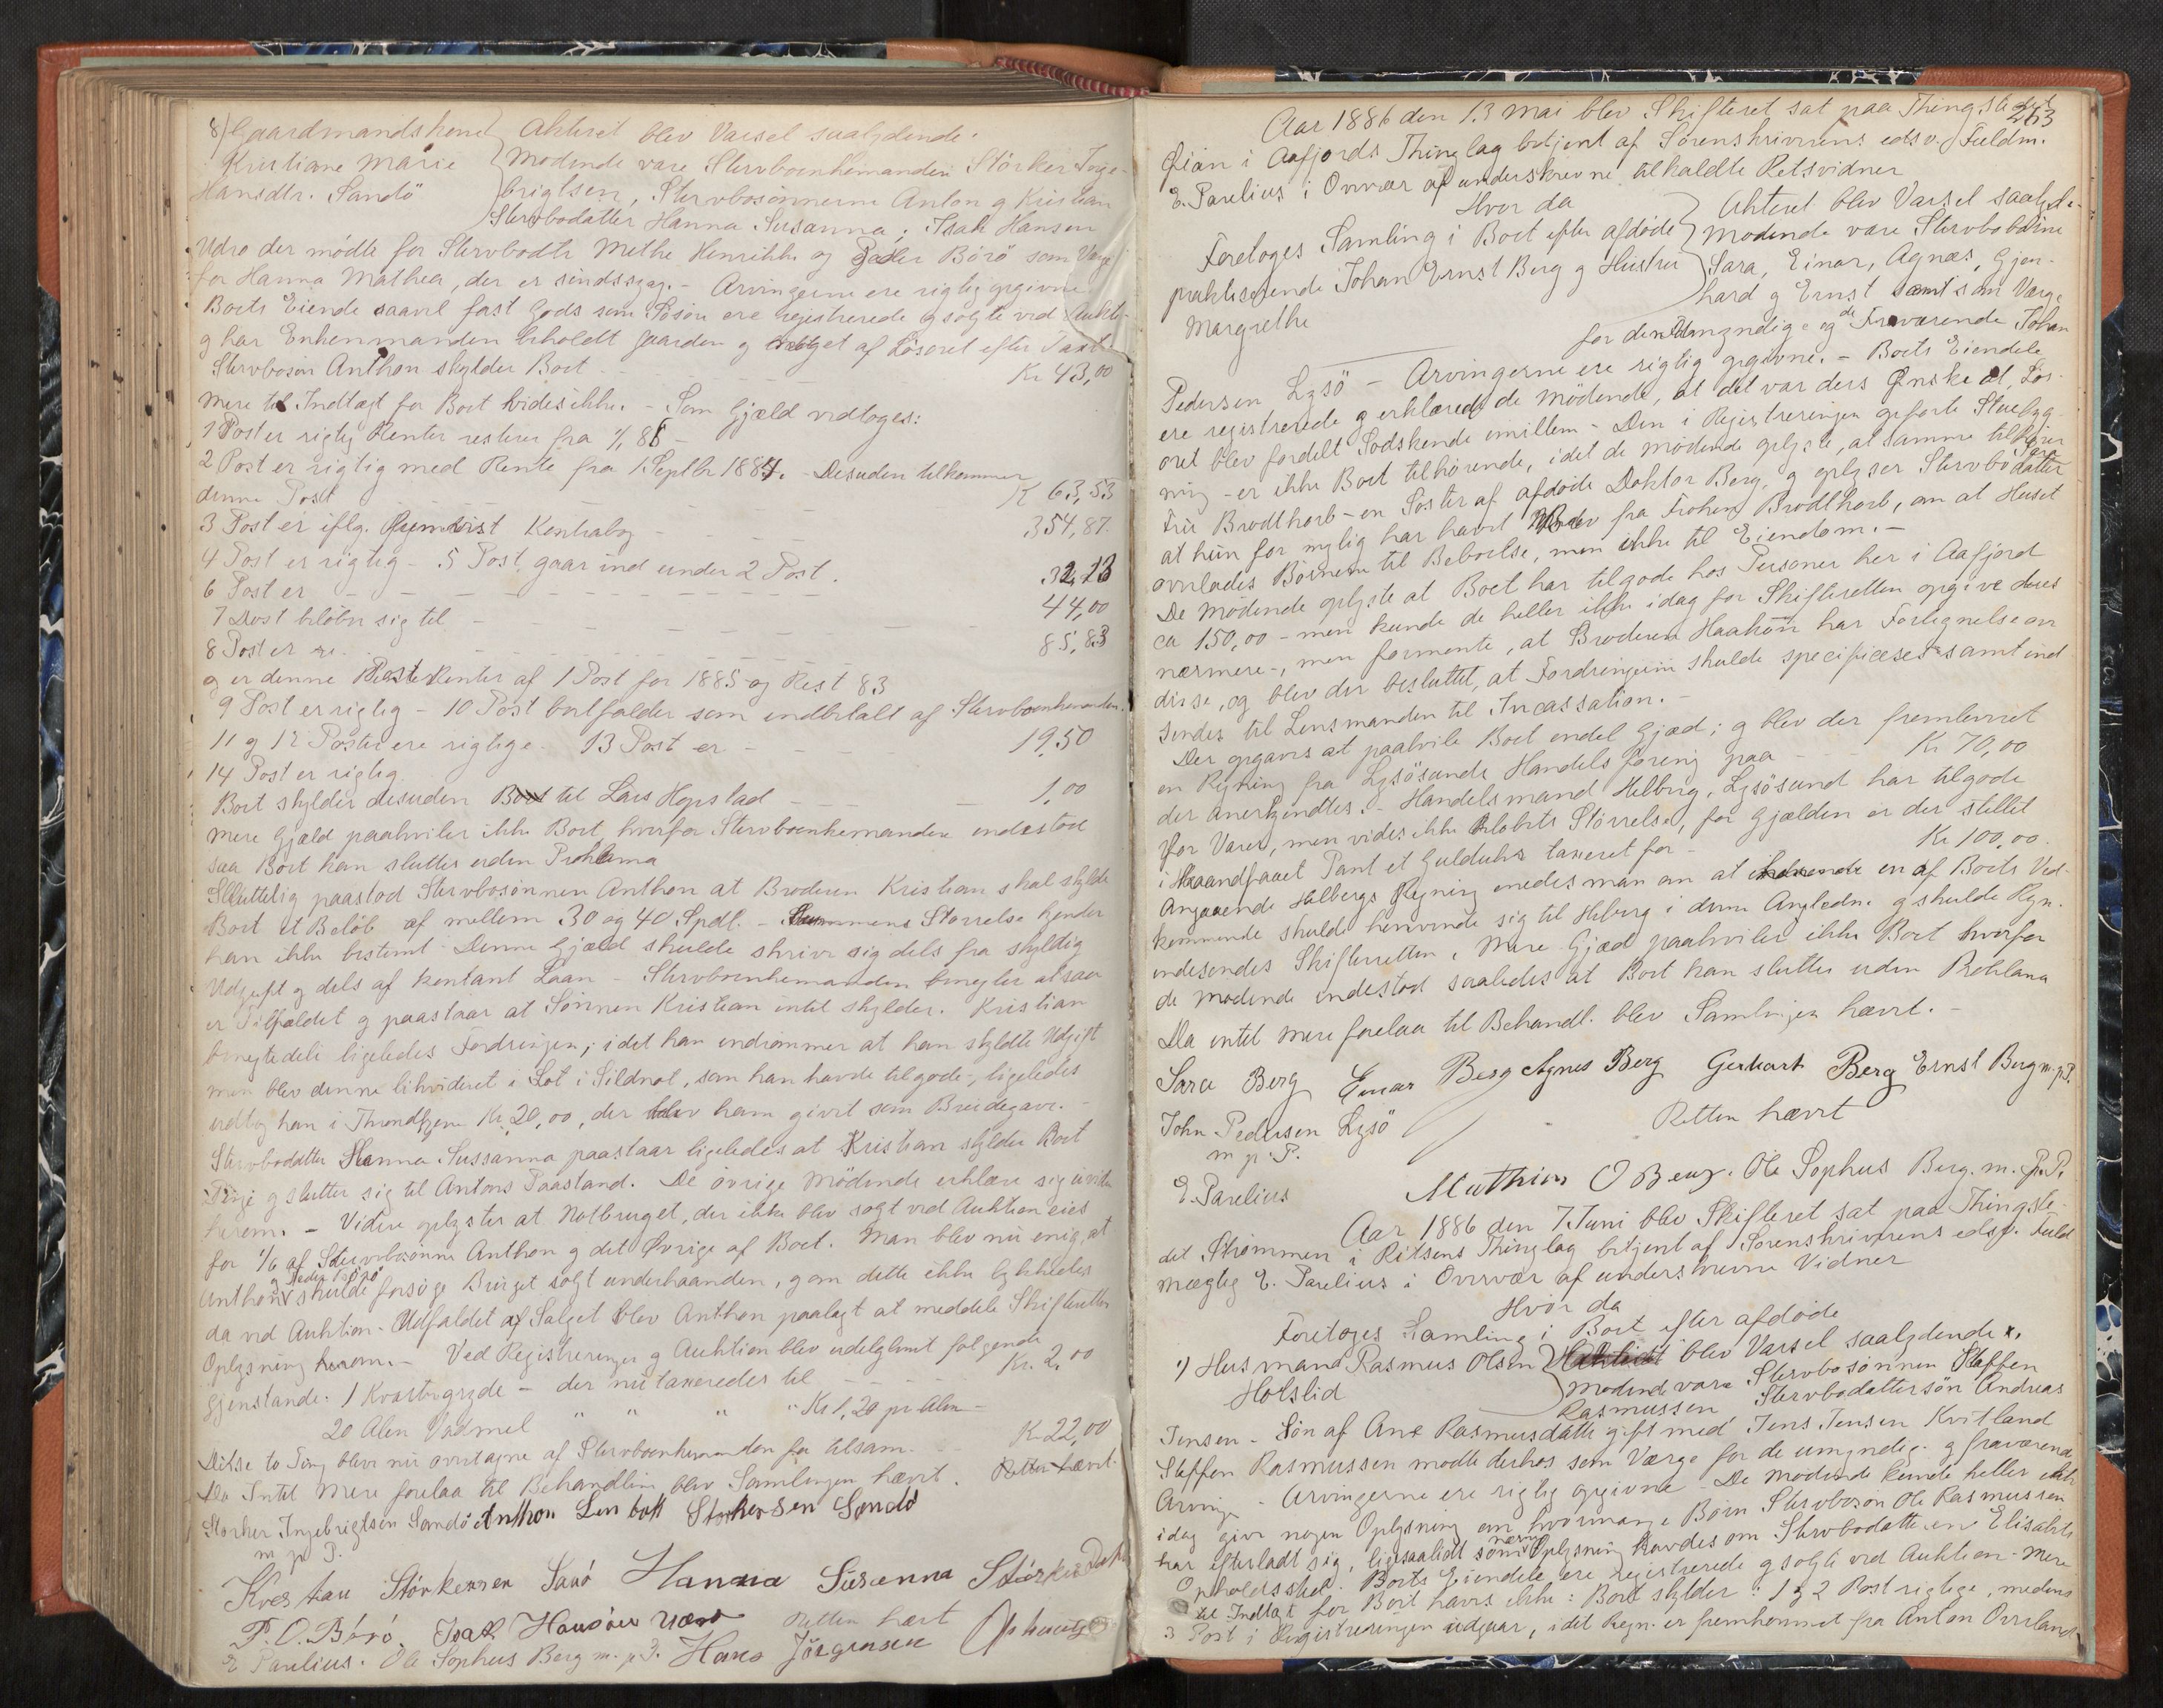 8) Gaardmandskone
Kristiane Marie
Hansdtr. Sandö
Akteret blev Varsel saalydende.
Mødende vare Stervboenkemanden Störker Inge-
brigtsen, Stervbosønnerne Anton og Kristian
Stervbodatter Hanna Susanna; Isak Hansen
Udro der mødte for Stervbodtr Methe Henrikke og Peder Börö som Værge
for Hanna Mathea, der er sindssyg. - Arvingerne ere rigtig opgivne
Boets Eiende saavel fast Gods som Løsøre ere registrerede og solgte ved Auktion
og har Enkemanden beholdt Gaarden og meget af Løsøret efter Taxt.
Stervbosøn Anthon skylder Boet - - - Kr 43,00
Mere til Indtægt for Boet vides ikke. - Som Gjæld vedtoges:
1 Post er rigtig Renter resterer fra 1/1 86 -
2 Post er rigtig med Rente fra 1 Septbr 1884. - Desuden tilkommer
denne Post - - - K 63,53
3 Post er iflg. Kontrabog - - - 354,87.
4 Post er rigtig - 5 Post gaar ind under 2 Post.
6 Post er - - - 32,13
7 Post beløber sig til - - - 44,00
8 Post er - - - 85,83
og er denne Post Renter af 1 Post for 1885 og Rest 83
9 Post er rigtig - 10 Post bortfalder som indbetalt af Stervboenkemanden.
11 og 12 Poster ere rigtige. 13 Post er - - - 19,50
14 Post er rigtig.
Boet skylder desuden til Lars Hopstad - - - 1,00
Mere Gjæld paahviler ikke Boet, hvorfor Stervboenkemanden indestod
saa Boet kan sluttes uden Proklama
Sluttelig paastod Stervbosønnen Anthon at Broderen Kristian skal skylde
Boet et Beløb af mellem 30 og 40 Spdl. - Summens Størrelse kjender
han ikke bestemt. Denne Gjæld skulde skrive sig dels fra skyldig
Udgift og dels af kontant Laan - Stervboenkemanden benegter at saa
er Tilfældet og paastaar at Sønnen Kristian intet skylder. Kristian
benegtede ligeledes Fordringen, idet han indrømmer at han skyldte Udgift
men blev denne likvideret i Lot i Sildnot, som han havde tilgode, ligeledes
udtog han i Throndhjem Kr. 20,00, der blev ham givet som Brudegave. -
Stervbodatter Hanna Sussanna paastaar ligeledes at Kristian skylder Boet
Penge og slutter sig til Antons Paastand. De øvrige Mødende erklære sig uvidende
herom. - Videre oplystes at Notbruget, der ikke blev solgt ved Auktion eies
for 1/6 af Stervbosønnen Anthon og det Øvrige af Boet. Man blev nu enig, at
Anthon og Peder Börö skulde forsøge Bruget solgt underhaanden, og om dette ikke lykkedes
da ved Auktion. Udfaldet af Salget blev Anthon paalagt at meddele Skifteretten
Oplysning herom. - Ved Registreringen og Auktion blev udelglemt følgende
Gjenstande. 1 - der nu taxeredes til - - - Kr. 2,00
20 Alen Vadmel " " " Kr 1,20 pr Alen -
Disse to Ting blev nu overtagne af Stervboenkemanden for tilsam. - - K 22,00
Da Intet Mere forelaa til Behandling blev Samlingen hævet. Retten hævet.
Störker Ingebrigtsen Sandö Anthon Storkersen Sandö
m p P.
Kristian Störkersen Sanö Hanna Susanna Störkersdatter
P. O. Börö. Isak Hansen Uddrö Retten hævet
E Parelius. Ole Sophus Berg m. p P. Hans Jörgensen
263
Aar 1886 den 13 Mai blev Skifteret sat paa Thingstedet
Qvian i Aafjords Thinglag betjent af Sorenskriverens edsv. Fuldm.
E. Parelius i Overvær af underskrevne tilkaldte Retsvidner
Hvor da
Foretoges Samling i Boet efter afdøde
praktiserende Johan Ernst Berg og Hustru
Margrethe
Akteret blev Varsel saalyde-
Mødende vare Stervbobørne
Sara, Einar, Agnæs, Gjer-
hard og Ernst samt som Værge
for den Umyndige og de Fraværende Johan
Pedersen Lysö - Arvingerne ere rigtig opgivne. - Boets Eiendele
ere registrerede og erklærede de Mødende, at det var deres Ønske at Løs-
øret blev fordelt Sødskende imillem - Den i Registreringen opførte Stuebyg-
ning - er ikke Boet tilhørende, idet de mødende oplyste, at samme tilhører
Fru Brodtkorb - en Søster af afdøde Doktor Berg, og oplyser Stervbodatter
at hun for nylig har havt Brev fra Frøken Brodtkorb, om at Huset
overlades Børnene til Beboelse, men ikke til Eiendom. -
De Mødende oplyste at Boet har tilgode hos Personer her i Aafjord
ca 150,00 - men kunde de heller ikke idag for Skifteretten opgive dees
nærmere -, men formente, at Broderen Haakon har Fortegnelse over
disse, og blev der besluttet, at Fordringerne skulde specificeses samt ind
sendes til Lensmanden til Incassation. -
Der opgaves at paahvile Boet endel Gjæld; og blev der fremleveret
en Regning fra Lysösunds Handelsforening paa - - Kr 70,00
der anerkjendtes. - Handelsmand Helberg, Lysösund har tilgode
for Varer, men vides ikke Beløbets Størrelse, for Gjælden er der stillet
i Haandfaaet Pant et Gulduhr taxeret for - Kr 100,00.
Angaaende Helbergs Regning enedes man om at en af Boets Ved-
kommende skulde henvende sig til Helberg i denne Anledn. og skulde Regn.
indsendes Skifteretten. Mere Gjæld paahviler ikke Boet hvorfor
de mødende indestod saaledes at Boet kan sluttes uden Proklama
Da intet mere forelaa til Behandl. blev Samlingen hævet. -
Sara Berg Einar Berg Agnes Berg Gerhart Berg Ernst Berg m.p.P.
John Pedersen Lysö
m p. P.
Retten hævet
E. Parelius Mathias O Berg. Ole Sophus Berg. m. p. P.
Aar 1886 den 7. Juni blev Skifteret sat paa Thingste-
det Strømmen i Ritsens Thinglag betjent af Sorenskriverens edsv. Fuld
mægtig E. Parelius i Overvær af underskrevne Vidner
Hvor da
Foretoges Samling i Boet efter afdøde
1) Husmand Rasmus Olsen
Holslid
blev Varsel saalydende.
Mødende vare Stervbosønnen Staffen
Rasmussen Stervbodattersøn Andreas
Jensen - Søn af Ane Rasmusdatter gift med Jens Jensen Kvitland
Steffen Rasmussen mødte derhos som Værge for de umyndige og fraværende
Arving - Arvingerne ere rigtig opgivne - De Mødende kunde heller ikke
idag give nogen Oplysning om hvormange Børn Stervbosøn Ole Rasmussen
har efterladt sig, ligesaalidt som nogen Oplysning havdes om Stervbodatteren Elisabets
Opholdssted. Boets Eiendele ere registrerede og solgte ved Auktion - Mere
til Indtægt for Boet haves ikke: Boet skylder: 1 og 2 Post rigtige, medens
3 Post i Registreringen udgaar, idet Regn. er fremkommet fra Anton Overland